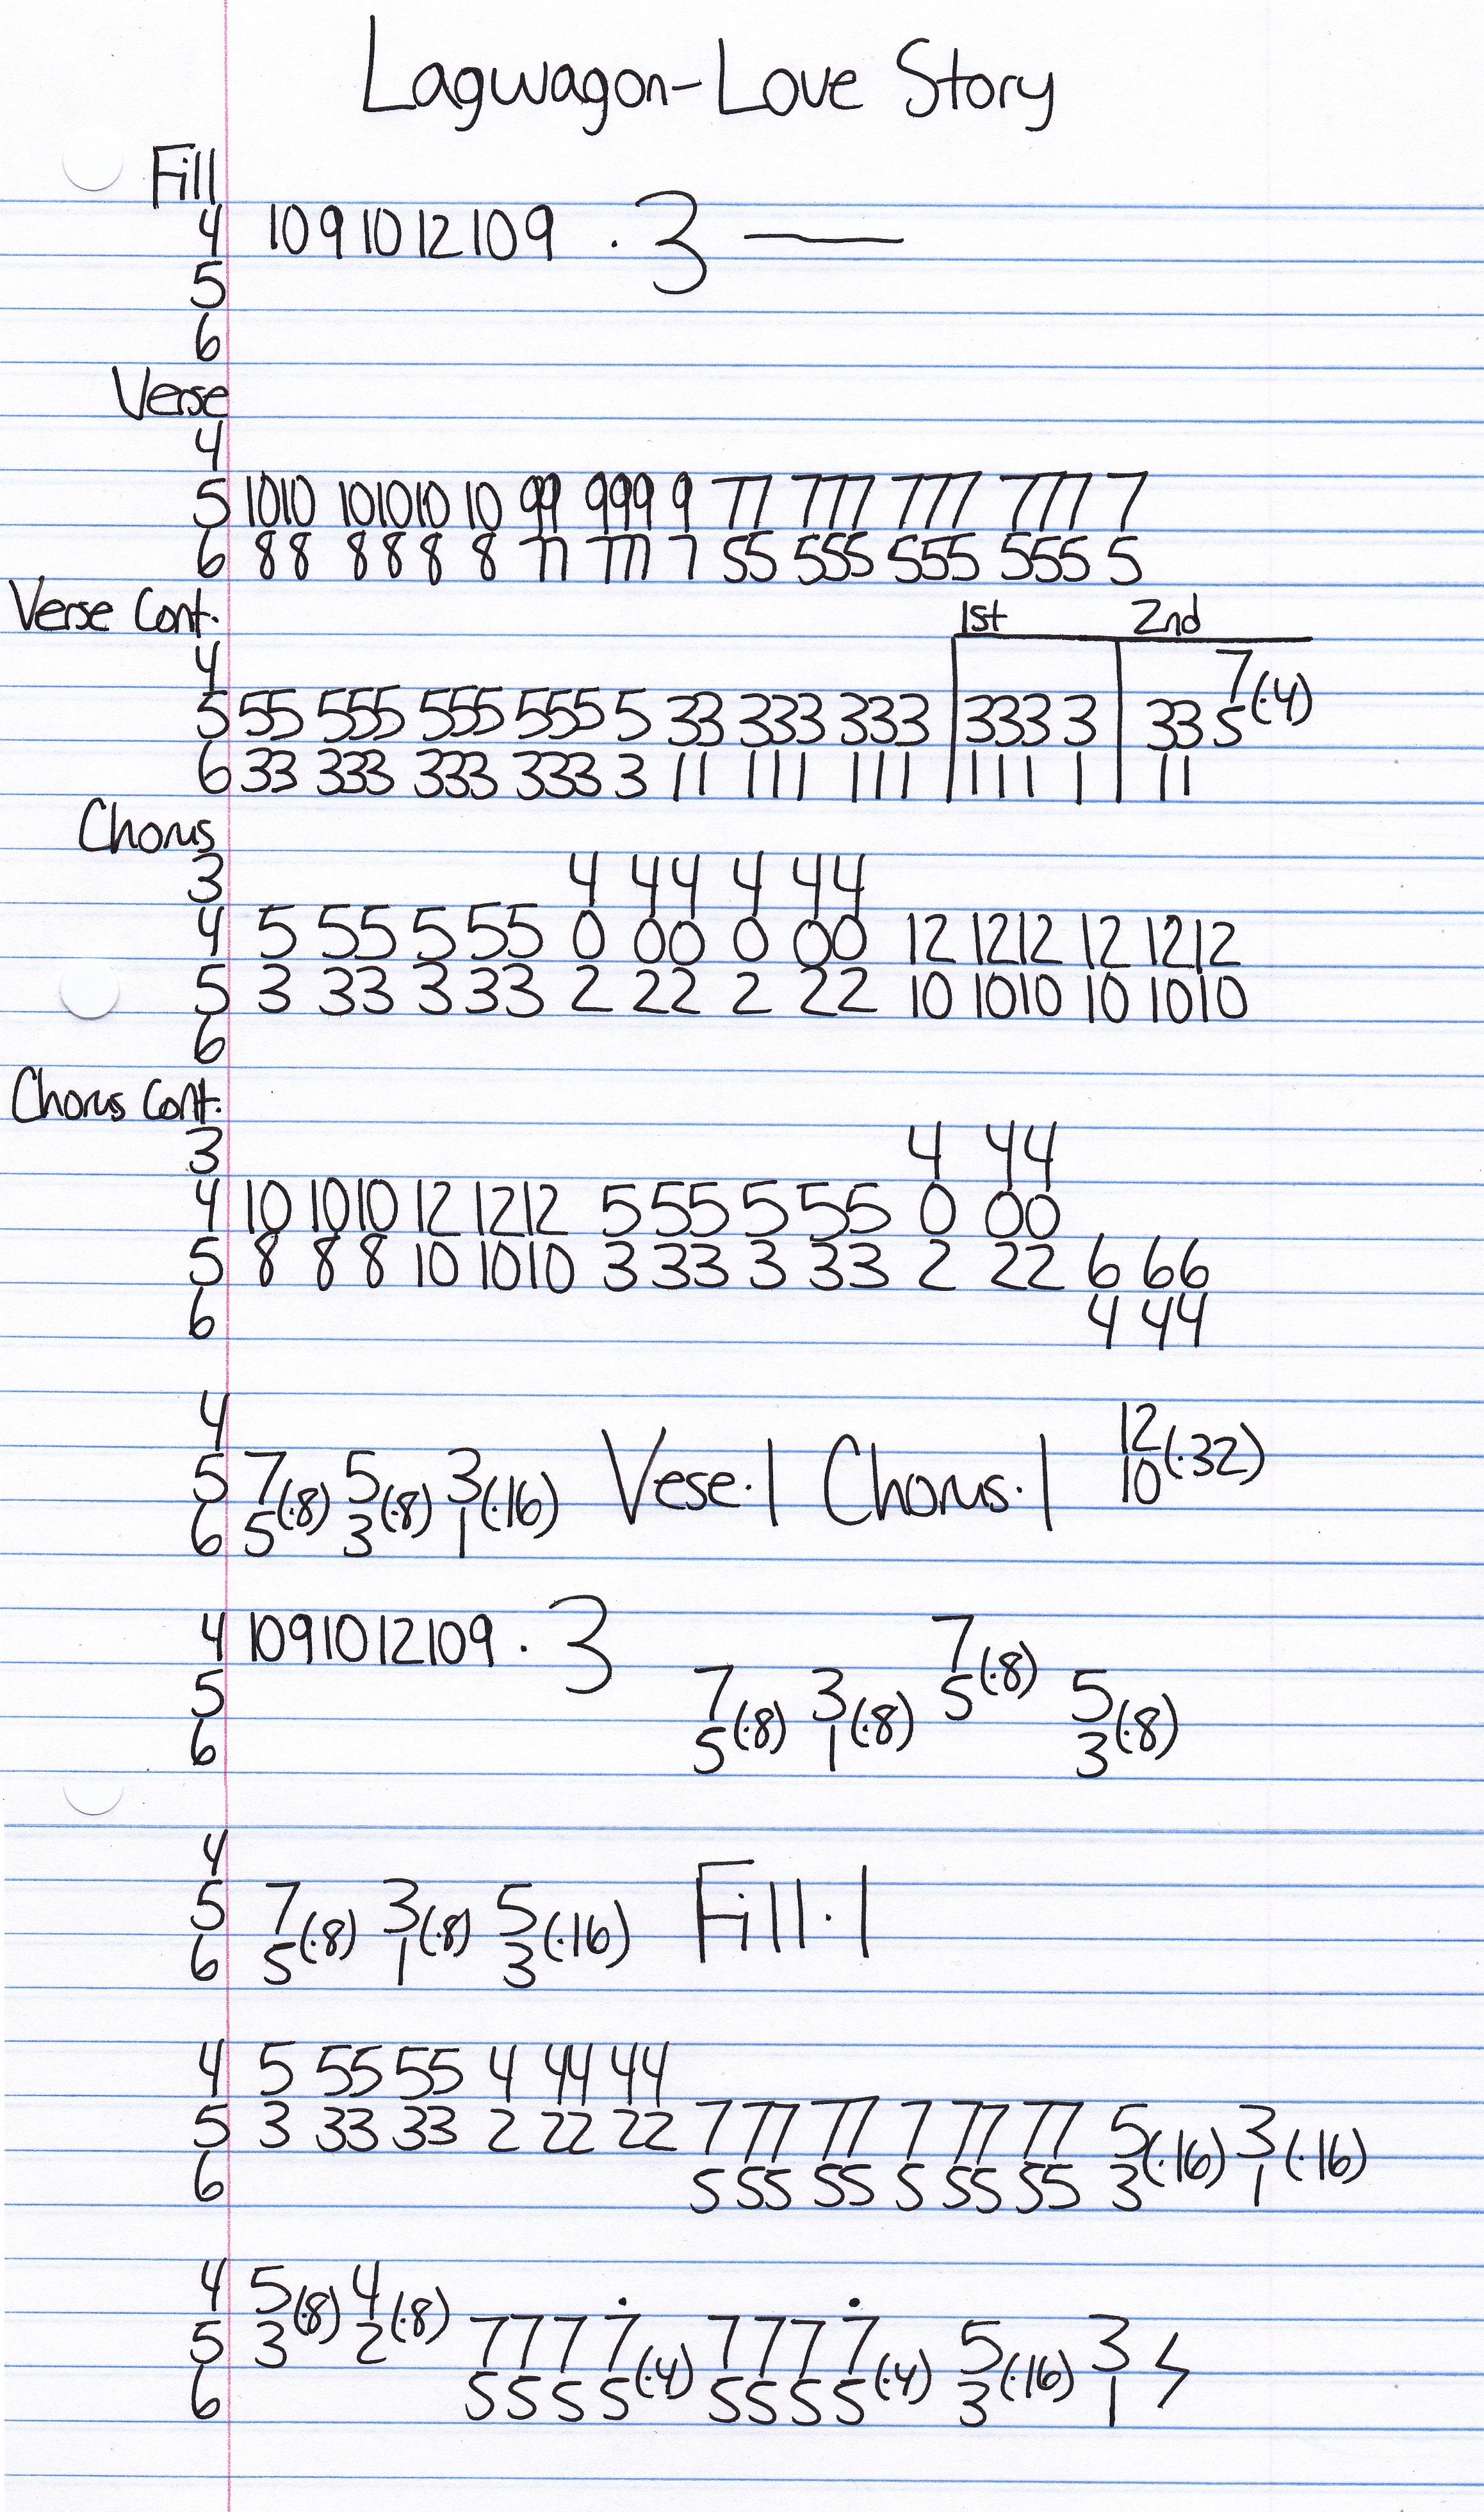 Lagwagon-Love Story
Fill
4 10 9 10 12 10 9 . 3 —
5
6
Verse
4
5 1010 101010 10 99 999 9 77 777 777 777 7
6 88 888 8 77 777 7 55 555 555 555 5
Verse Cont. 1st 2nd
4 7
5 55 555 555 555 5 33 333 333 333 3 33 5 (·4)
6 33 333 333 333 3 11 111 111 111 1 11
Chorus
3 4 44 4 44
4 5 55 5 55 0 00 0 00 12 1212 12 1212
5 3 33 3 33 2 22 2 22 10 1010 10 1010
6
Chorus Cont.
3 4 44
4 10 1010 12 1212 5 55 5 55 0 00
5 8 88 10 1010 3 33 3 33 2 22 6 66
6 4 44
4 12
5 7 (·8) 5 (·8) 3 (·16) Vese·1 Chorus·1 10 (·32)
6 5 3 1
4 10 9 10 12 10 9 · 3 7
5 7 (·8) 3 (·8) 5 (·8) 5 (·8)
6 5 1 3
4
5 7 (·8) 3 (·8) 5 (·16) Fill·1
6 5 1 3
4 5 55 55 4 44 44
5 3 33 33 2 22 22 7 77 77 7 77 77 5 (·16) 3 (·16)
6 5 55 55 5 55 55 3 1
4 5 (·8) 4 (·8)
5 3 2 7 7 7 7 (·4) 7 7 7 7 (·4) 5 (·16) 3
6 5 5 5 5 5 5 5 5 3 1